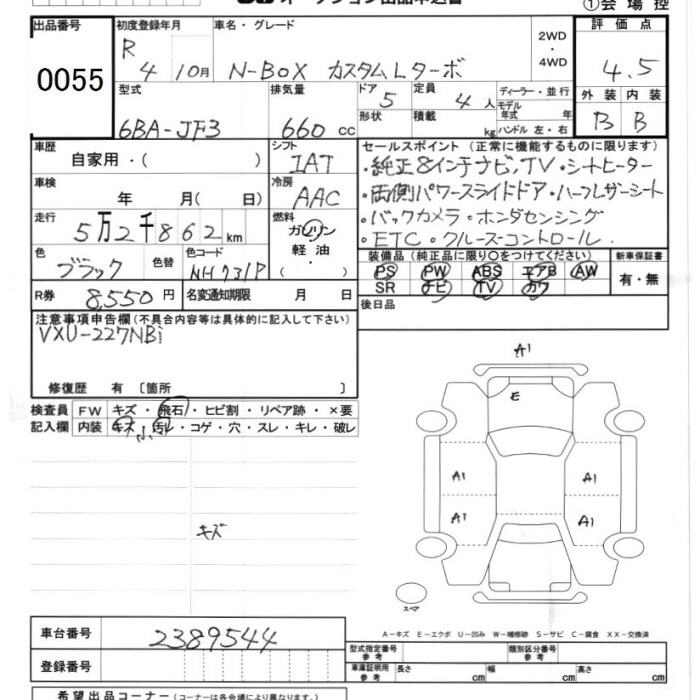 ①会場控
出品番号 初度登録年月 車名・グレード 2WD・4WD 評価点
0055 R 4 10月 N-BOX カスタムLターボ 4.5
型式 排気量 ドア 5 定員 4人 ディーラー・並行 外装 内装
6BA-JF3 660cc 形状 積載 kg モデル年式 年 B B
ハンドル 左・右
車歴 シフト セールスポイント(正常に機能するものに限ります)
自家用・( ) IAT ・純正8インチナビ,TV・シートヒーター
車検 冷房 ・両側パワースライドドア・ハーフレザーシート
年 月( 日) AAC ・バックカメラ・ホンダセンシング
走行 燃料 ・ETC・クルーズコントロール
5万2千862km ガソリン
軽油・
( )
色 色替 色コード 装備品(純正品に限り○をつけてください) 新車保証書
ブラック NH731P PS PW ABS エアB AW 有・無
SR ナビ TV カワ
R券 8,550円 名変通知期限 月 日 後日品
注意事項申告欄(不具合内容等は具体的に記入して下さい)
VXU-227NBi
修復歴 有〔箇所 〕
検査員 FW キズ・飛石・ヒビ割・リペア跡・×要
記入欄 内装 キズ・汚レ・コゲ・穴・スレ・キレ・破レ
キズ
A1
E
A1 A1
A1 A1
スペア
A-キズ E-エクボ U-凹み W-補修跡 S-サビ C-腐食 XX-交換済
車台番号 2389544
登録番号
型式指定番号 参考 類別区分番号 参考
車庫証明用 参考 長さ cm 幅 cm 高さ cm
希望出品コーナー(コーナーは各会場により異なります。)